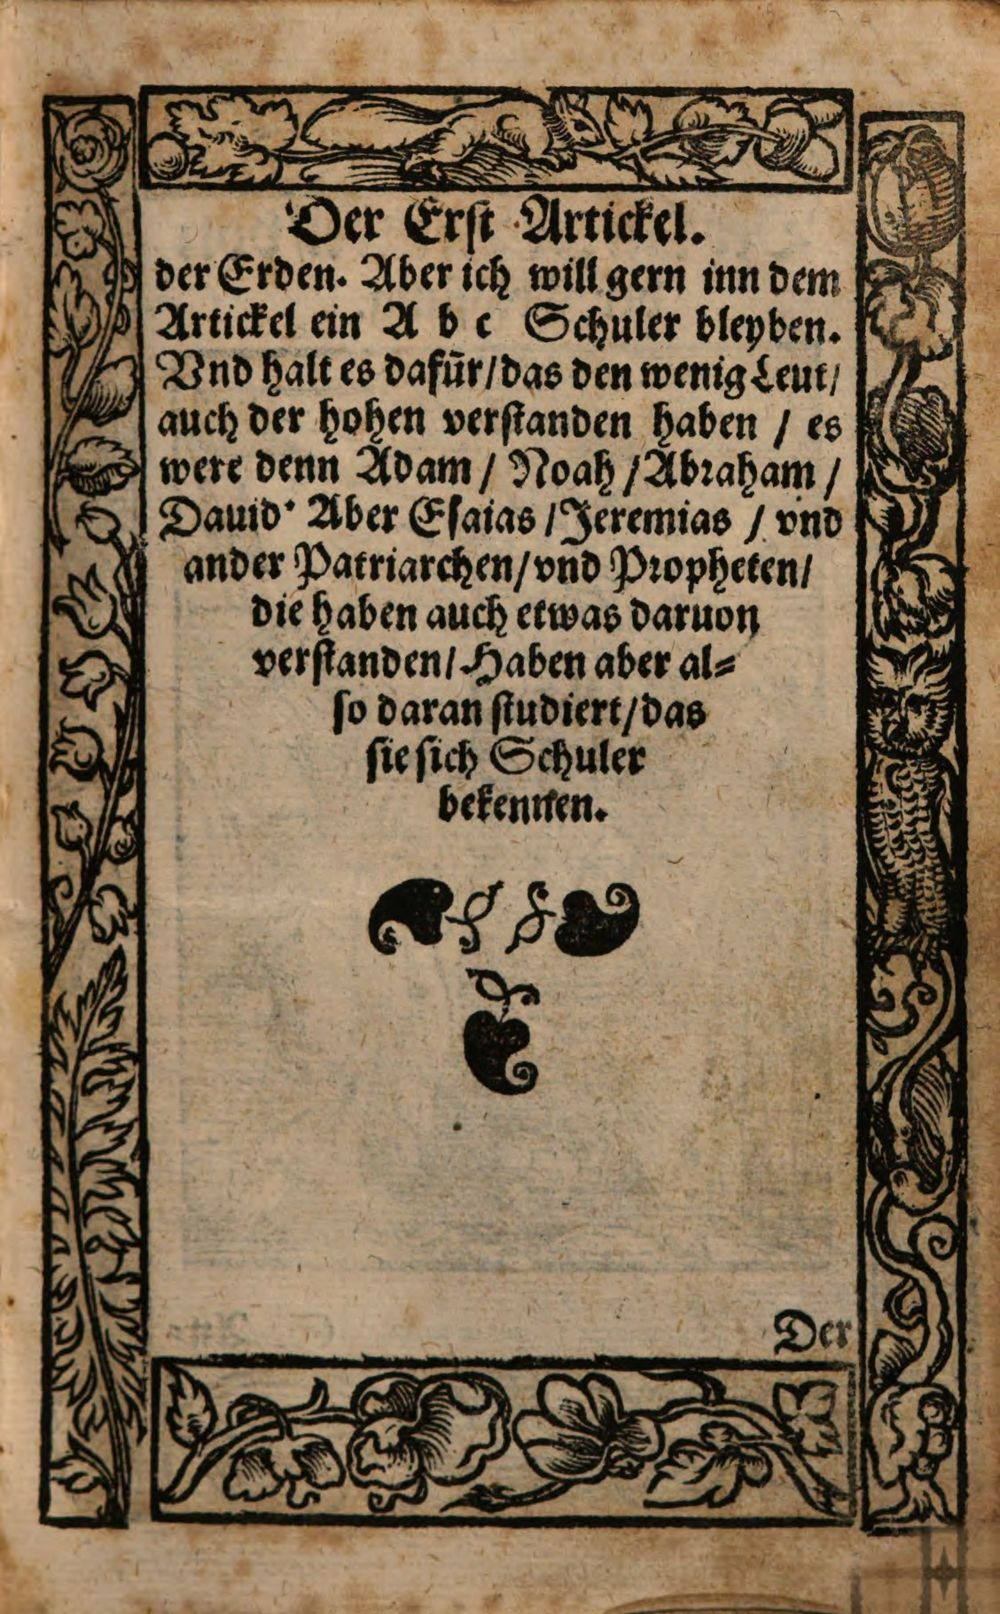 Der Erst Artickel.
der Erden. Aber ich will gern inn dem
Artickel ein A b c Schuler bleyben.
Vnd halt es dafür/das den wenig Leut/
auch der hohen verstanden haben / es
were denn Adam / Noah /Abraham /
Dauid· Aber Esaias /Jeremias / vnd
ander Patriarchen/vnd Propheten/
die haben auch etwas daruon
verstanden/ Haben aber al⸗
so daran studiert/das
sie sich Schuler
bekennen.
Der